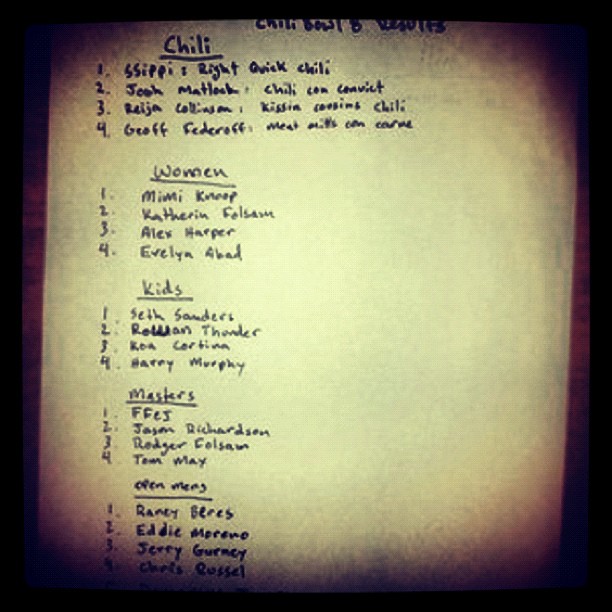 Chili Bowl 8 Results
Chili
1. SSippi: Right Quick Chili
2. Josh Matlock: Chili con convict
3. Reija Collinson: Kissin cousins chili
4. Geoff Federoff: Meat mitts con carne
Women
1. Mimi Knoop
2. Katherin Folsam
3. Alex Harper
4. Evelyn Abad
Kids
1 Seth Sanders
2. Roman Thunder
3 Koa Cortina
4. Harry Murphy
Masters
1. FFEJ
2. Jason Richardson
3. Rodger Folsam
4 Tom Max
open mens
1. Raney Beres
2. Eddie Moreno
3. Jerry Gurney
4 Chris Russel